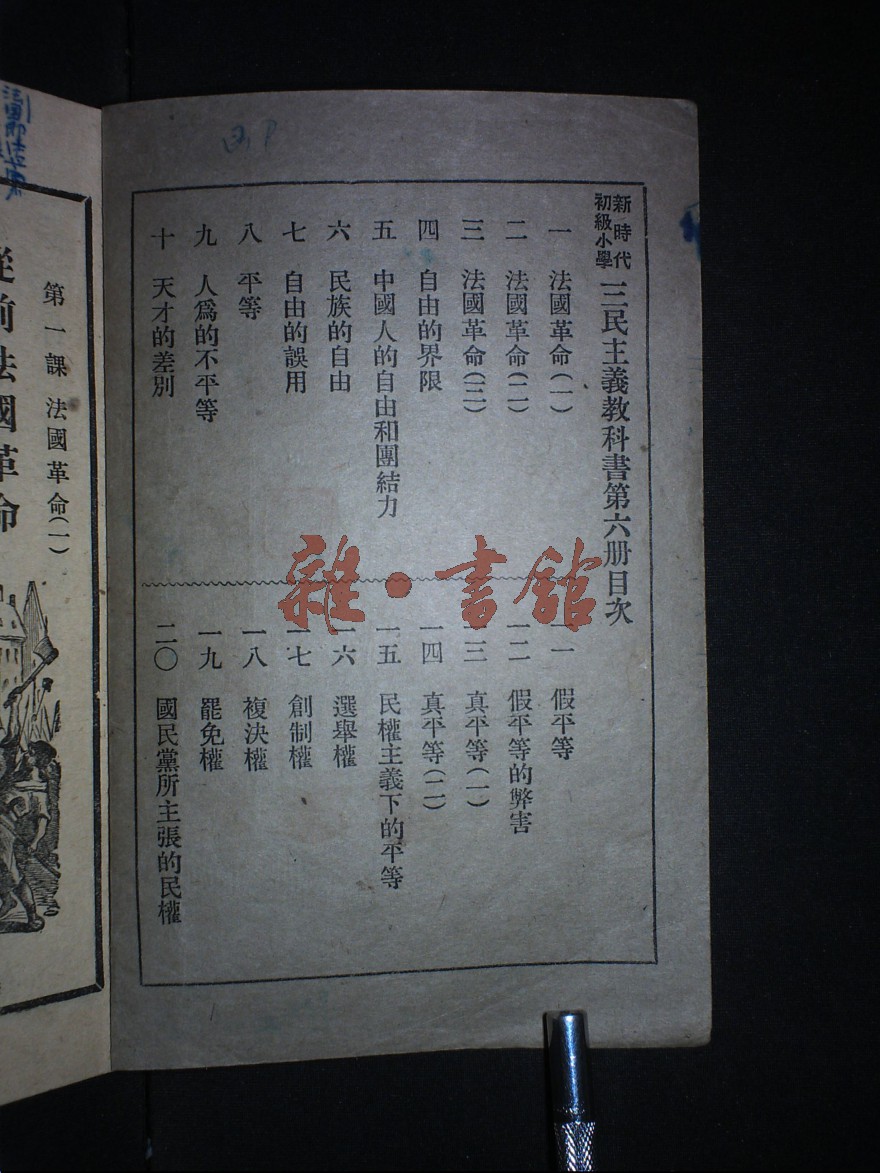 新時代
初級小學
三民主義教科書第六册目次
一 法國革命(一)
二 法國革命(二)
三 法國革命(三)
四 自由的界限
五 中國人的自由和團結力
六 民族的自由
七 自由的誤用
八 平等
九 人爲的不平等
十 天才的差別
一一 假平等
一二 假平等的弊害
一三 真平等(一)
一四 真平等(二)
一五 民權主義下的平等
一六 選舉權
一七 創制權
一八 複決權
一九 罷免權
二〇 國民黨所主張的民權
雜·書館
第一課 法國革命(一)
從前法國革命